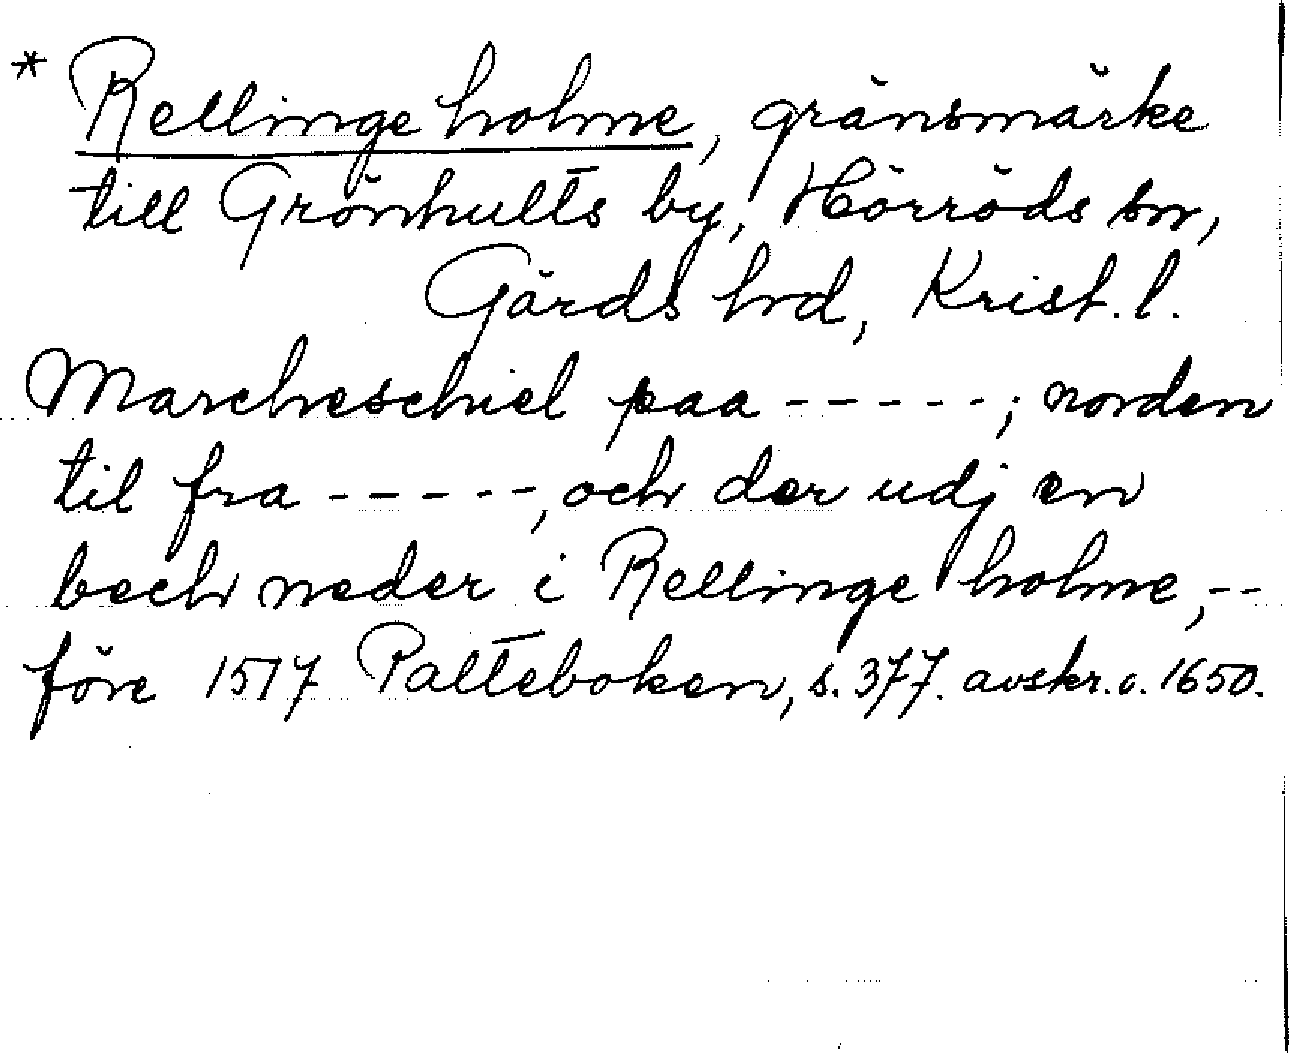 * Rellinge holme, gränsmärke
till Grönhults by, Hörröds sn,
Gärds hd, Krist. l.
Marcheschiel paa -----; norden
til fra -----, och der udj en
bech neder i Rellinge holme, --
före 1517 Palteboken, s. 377. avskr. o. 1650.